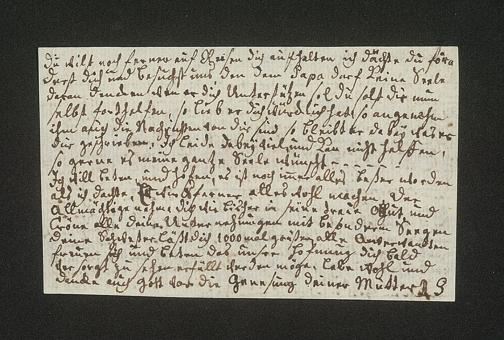 du wilst noch ferner auf Reisen dich aufhalten ich dächte du
dich und besuchst uns, den dem Papa darf keine Seele
daran denken wen er dich Unterstüzen sol du solst dir nun
selbst forthelfen, so lieb er dich würcklich hat, so angenehm
ihm auch die Nachrichten von dir sind, so bleibt er dabey
dir geschrieben, ich leide dabey viel, und kan nicht helfen,
so gerne es meine ganze Seele wünscht
ich will beten, und hoffen, es ist noch immer alles besser worden
als ich dachte, Gott wird ferner alles wohl machen Der
Allmächtige nehm dich wie bisher in seine Hut und
Cröne alle deine Unternehmungen mit besonderm Seegen
deine Schwester läst dich 1000 mal grüsen alle Anverwandten
freuen sich und beten das unsre Hofnung dich bald
versorgt zu sehen erfüllt werden möge. Lebe wohl und
dancke auch Gott vor die Genesung deiner Mutter